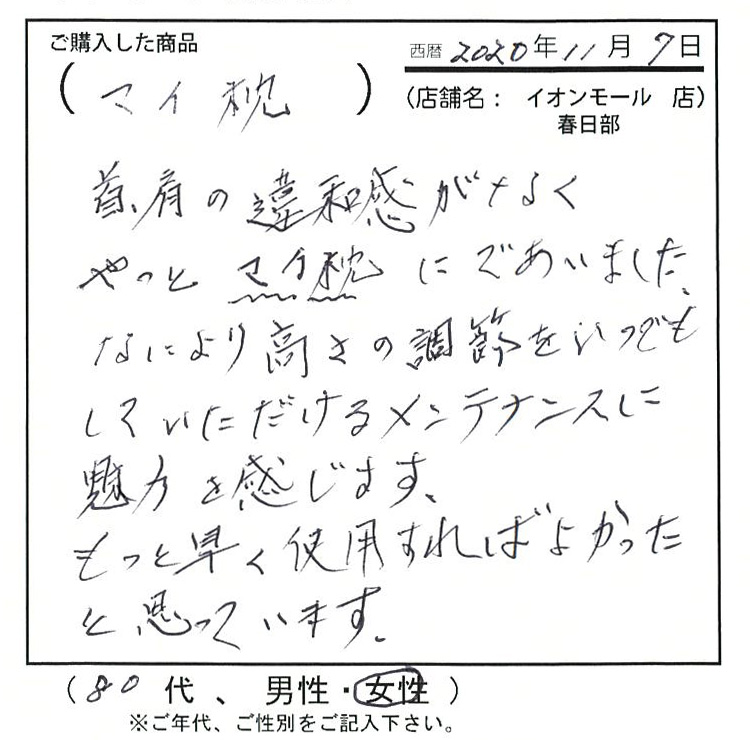 ご購入した商品
西暦 2020年 11月 7日
(マイ枕)
(店舗名： イオンモール 店)
春日部
首、肩の違和感がなく
やっと マイ枕 にであいました。
なにより高さの調節をいつでも
していただけるメンテナンスに
魅力を感じます。
もっと早く使用すればよかった
と思っています。
(80 代 、 男性・女性 )
※ご年代、ご性別をご記入下さい。